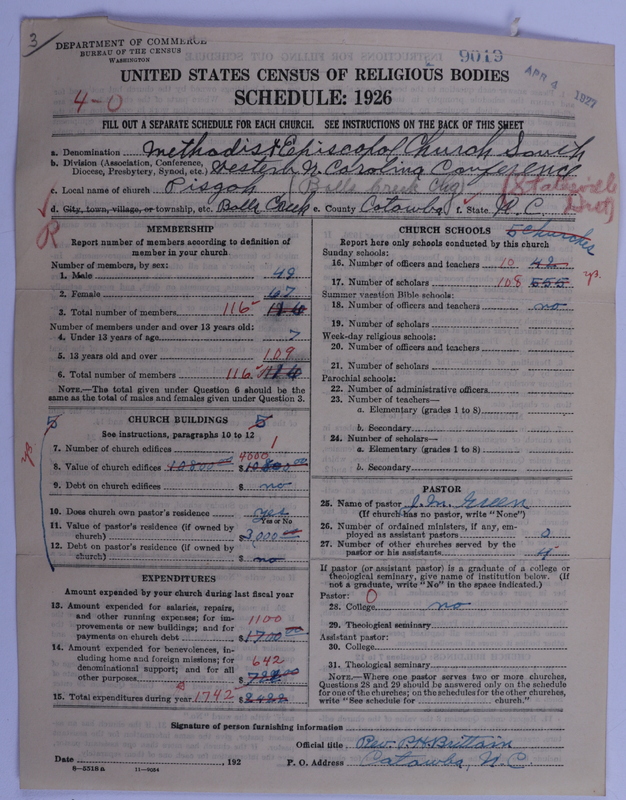 3
DEPARTMENT OF COMMERCE
BUREAU OF THE CENSUS
WASHINGTON
9019
APR 4 1927
UNITED STATES CENSUS OF RELIGIOUS BODIES
4-0
SCHEDULE: 1926
FILL OUT A SEPARATE SCHEDULE FOR EACH CHURCH. SEE INSTRUCTIONS ON THE BACK OF THIS SHEET
a. Denomination Methodist Episcopal Church South
b. Division (Association, Conference, Diocese, Presbytery, Synod, etc.) Western N. Carolina Conference
c. Local name of church Pisgah (Balls Creek Chg) (Statesville Dist)
d. City, town, village, or township, etc. Balls Creek e. County Catawba f. State N. C.
R
MEMBERSHIP
Report number of members according to definition of
member in your church.
Number of members, by sex:
1. Male 49
2. Female 67
3. Total number of members 116
Number of members under and over 13 years old:
4. Under 13 years of age 7
5. 13 years old and over 109
6. Total number of members 116
NOTE.—The total given under Question 6 should be
same as the total of males and females given under Question 3.
5 CHURCH BUILDINGS 5
See instructions, paragraphs 10 to 12
7. Number of church edifices 1
4000
8. Value of church edifices 10800 $
9. Debt on church edifices $ no
10. Does church own pastor's residence yes
Yes or No
11. Value of pastor's residence (if owned by
church) $3,000
12. Debt on pastor's residence (if owned by
church) $ no
EXPENDITURES
Amount expended by your church during last fiscal year
13. Amount expended for salaries, repairs,
and other running expenses; for im-
provements or new buildings; and for
payments on church debt $ 1100 1700.00
14. Amount expended for benevolences, in-
cluding home and foreign missions; for
denominational support; and for all
other purposes $ 642
15. Total expenditures during year 1742 $ 2422
CHURCH SCHOOLS 5 churches
Report here only schools conducted by this church
Sunday schools:
16. Number of officers and teachers 10 42
17. Number of scholars 108 555
Summer vacation Bible schools:
18. Number of officers and teachers no
19. Number of scholars
Week-day religious schools:
20. Number of officers and teachers
21. Number of scholars
Parochial schools:
22. Number of administrative officers
23. Number of teachers—
a. Elementary (grades 1 to 8)
b. Secondary
24. Number of scholars—
a. Elementary (grades 1 to 8)
b. Secondary
PASTOR
25. Name of pastor J. M. Green
(If church has no pastor, write "None")
26. Number of ordained ministers, if any, em-
ployed as assistant pastors 0
27. Number of other churches served by the
pastor or his assistants 4
If pastor (or assistant pastor) is a graduate of a college or
theological seminary, give name of institution below. (If
not a graduate, write "No" in the space indicated.)
Pastor: 0
28. College no
29. Theological seminary
Assistant pastor:
30. College
31. Theological seminary
NOTE.—Where one pastor serves two or more churches,
Questions 28 and 29 should be answered only on the schedule
for one of the churches; on the schedules for the other churches,
write "See schedule for church."
Signature of person furnishing information
Official title Rev. P. H. Brittain
Date 192
P. O. Address Catawba, N. C.
8—5518 a 11—9084